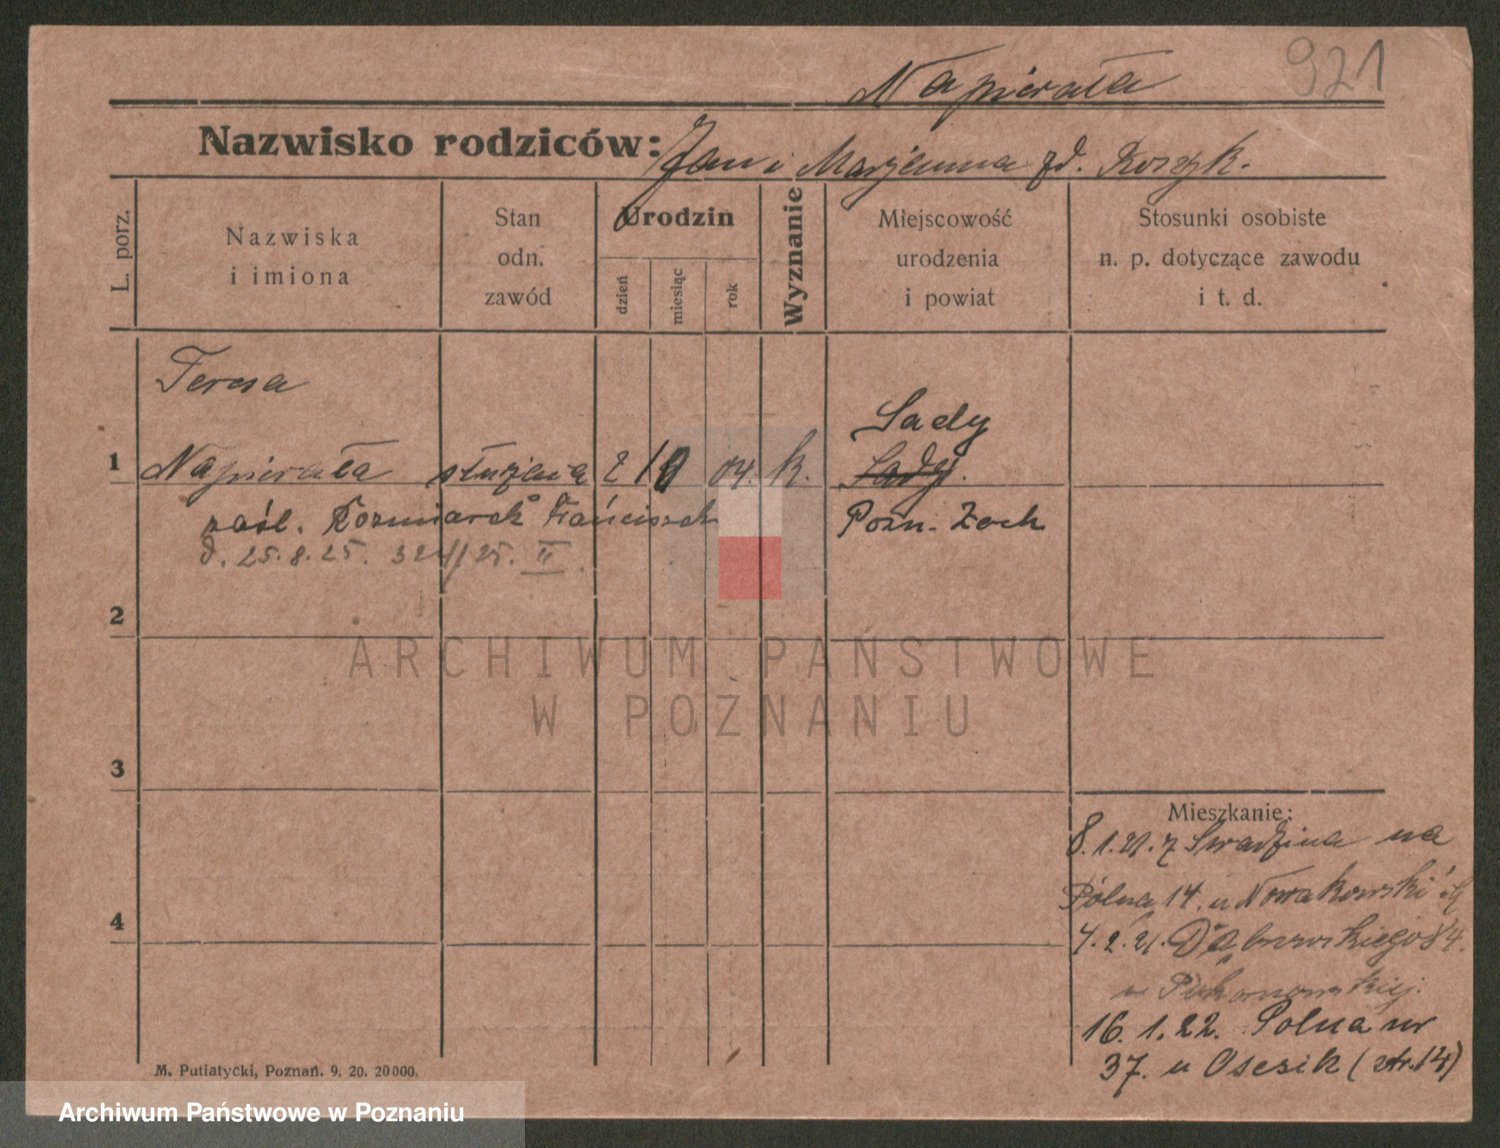 Napierała 921
Nazwisko rodziców: Jan i Marjanna zd. Koszyk.
L. porz.
Nazwiska
i imiona
Stan
odn.
zawód
Urodzin
dzień
miesiąc
rok
Wyznanie
Miejscowość
urodzenia
i powiat
Stosunki osobiste
n. p. dotyczące zawodu
i t. d.
Teresa
Sady
1 Napierała służąca 2 10 04. k. Sady.
zaśl. Kozmiarek Franciszek Pozn. Zach
d. 25.8.25. 324/25. II.
2
ARCHIWUM PAŃSTWOWE
W POZNANIU
3
Mieszkanie:
8.1.21. z Swadzina na
Polna 14. u Nowakowski
4
4.2.21. Dąbrowskiego 84.
16.1.22. Polna nr
37. u Osesik (str. 14)
M. Putiatycki, Poznań. 9. 20. 20000.
Archiwum Państwowe w Poznaniu